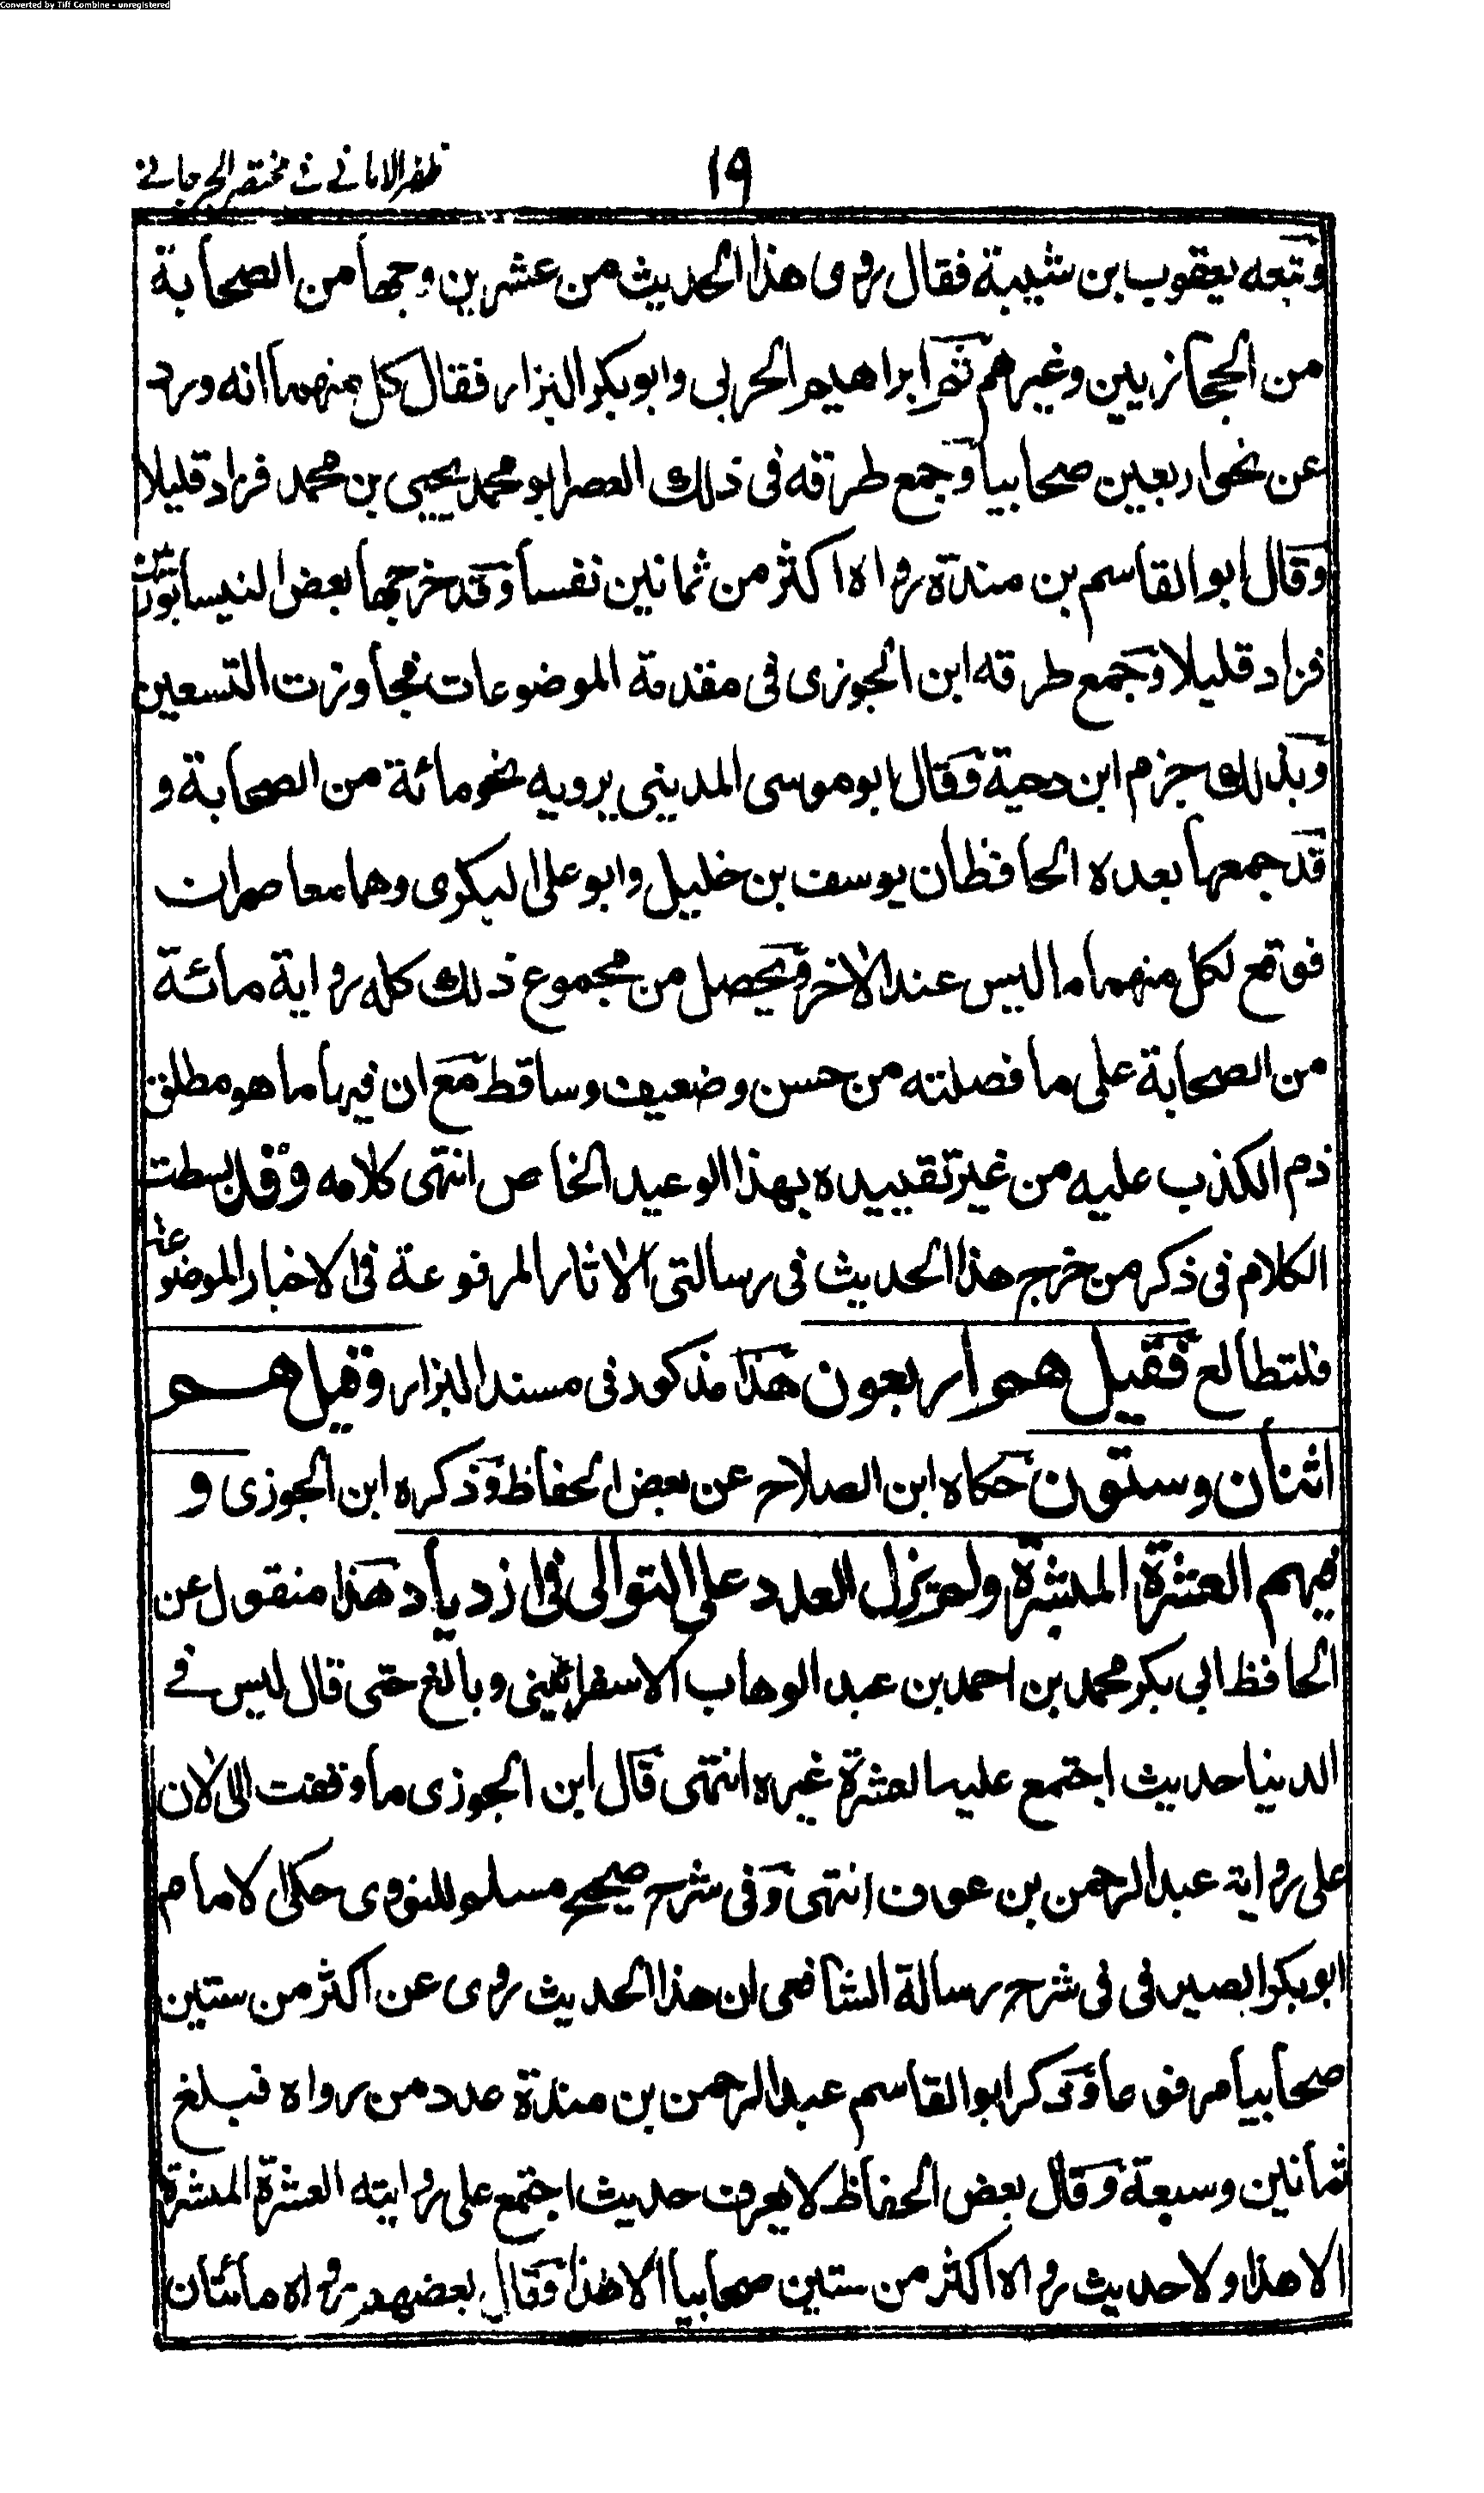 Converted by Tiff Combine - unregistered
ظفر الامانے فے مختصر الجرجانے
١٩
وتبعه يعقوب بن شيبة فقال روى هذا الحديث من عشرين وجها من الصحابة
من الحجازيين وغيرهم ثم ابراهيم الحربى وابو بكر البزار فقال كل منهما انه ورد
عن نحو اربعين صحابيا وجمع طرقه فى ذلك العصر ابو محمد يحيى بن محمد فزاد قليلا
وقال ابو القاسم بن مندة رواه اكثر من ثمانين نفسا وقد خرجها بعض النيسابوريين
فزاد قليلا وجمع طرقه ابن الجوزى فى مقدمة الموضوعات فجاوزت التسعين
وبذلك جزم ابن دحية وقال ابو موسى المدينى يرويه نحو مائة من الصحابة و
قد جمعها بعده الحافظان يوسف بن خليل وابو على البكرى وهما معاصران
فوقع لكل منهما ما ليس عند الاخر وتحصل من مجموع ذلك كله رواية مائة
من الصحابة على ما فصلته من حسن وضعيف وساقط مع ان فيها ما هو مطلق
ذم الكذب عليه من غير تقييده بهذا الوعيد الخاص انتهى كلامه وقد بسطت
الكلام فى ذكر من خرج هذا الحديث فى رسالتى الاثار المرفوعة فى الاخبار الموضوعة
فلتطالع فقيل هو اربعون هذا مذكور فى مسند البزار وقيل هو
اثنان وستون حكاه ابن الصلاح عن بعض الحفاظ وذكره ابن الجوزى و
فيهم العشرة المبشرة ولم يزل العدد على التوالى فى ازدياد هذا منقول عن
الحافظ ابى بكر محمد بن احمد بن عبد الوهاب الاسفرائينى وبالغ حتى قال ليس فے
الدنيا حديث اجتمع عليه العشرة غيره انتهى قال ابن الجوزى ما وقفت الى الان
على رواية عبد الرحمن بن عوف انتهى وفى شرح صحيح مسلم للنووى حكى الامام
ابو بكر الصيرفى فى شرح رسالة الشافعى ان هذا الحديث روى عن اكثر من ستين
صحابيا مرفوعا وذكر ابو القاسم عبد الرحمن بن مندة عدد من رواه فبلغ
ثمانين وسبعة وقال بعض الحفاظ لا يعرف حديث اجتمع على روايته العشرة المبشرة
الا هذا ولا حديث رواه اكثر من ستين صحابيا الا هذا وقال بعضهم رواه مائتان